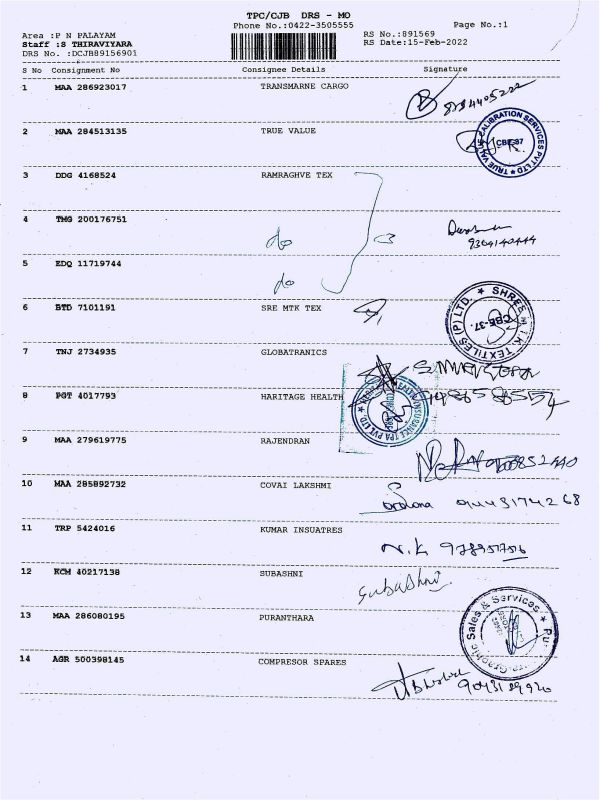 TPC/CJB DRS - MO
Phone No.:0422-3505555
Page No.:1
Area :P N PALAYAM
Staff :S THIRAVIYARA
DRS No. :DCJB89156901
RS No.:891569
RS Date:15-Feb-2022
S No Consignment No Consignee Details Signature
1 MAA 286923017 TRANSMARNE CARGO
2 MAA 284513135 TRUE VALUE
TRUE VALUE CALIBRATION SERVICES PVT LTD
CBE-37
3 DDG 4168524 RAMRAGHVE TEX
4 TMG 200176751 do 3
9364140444
5 EDQ 11719744 do
6 BTD 7101191 SRE MTK TEX
SHREE M.T.K TEXTILES (P) LTD.
CBE-37.
7 TNJ 2734935 GLOBATRANICS
8 PGT 4017793 HARITAGE HEALTH
HEALTH INSURANCE TPA PVT LTD
9 MAA 279619775 RAJENDRAN
10 MAA 285892732 COVAI LAKSHMI
9443174268
11 TRP 5424016 KUMAR INSUATRES N.K
12 KCM 40217138 SUBASHNI Subashni
13 MAA 286080195 PURANTHARA
Graphic Sales & Services
14 AGR 500398145 COMPRESOR SPARES